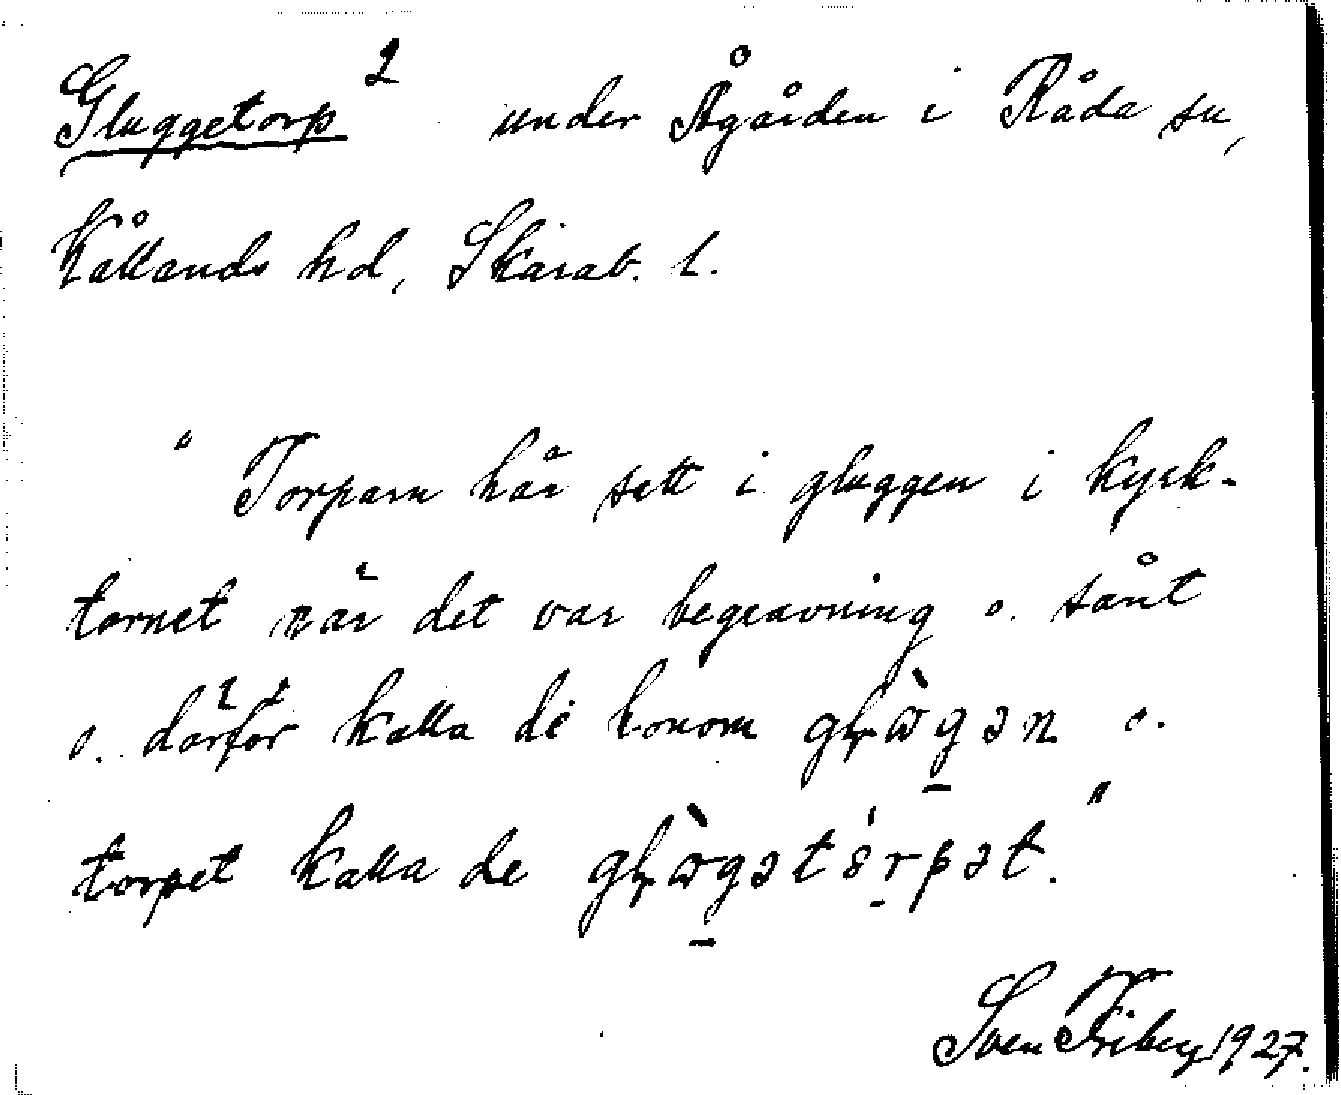 Gluggetorp 2 under Ågården i Råda sn,
Kållands hd, Skarab. l.
"Torparn här satt i gluggen i kyrk-
tornet när det var begravning o. sånt
o. därför kalla de honom glɷ̀gən o.
torpet kalla de glɷ̀gətórpət."
Sven Friberg 1927.